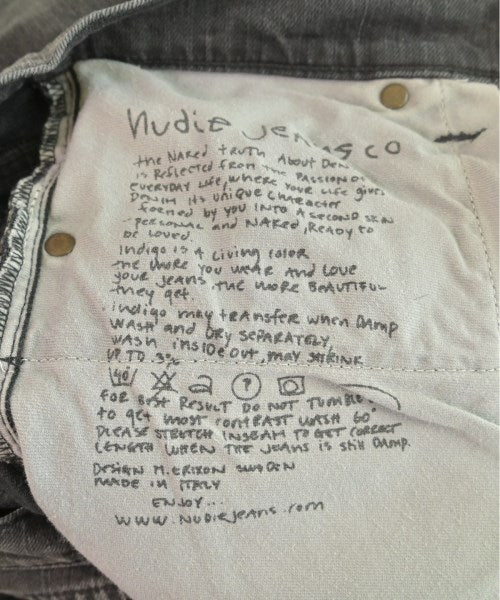 Nudie Jeans co
the NAKED truth About Den
is Reflected from the PASSION of
EVERYDAY Life, Where YOUR Life gives
DENIM its UNIQUE CHARACTER
formed by you INTO A SECOND SKIN
PERSONAL AND NAKED, READY to
BE LOVED.
INDIGO IS A LIVING COLOR
the MORE YOU WEAR AND LOVE
YOUR JEANS the MORE BEAUTIFUL
they get.
indigo may transfer when DAMP
WASH and DRY SEPARATELY,
WASH INSIDE OUT, MAY SHRINK
UP TO 3%
40
FOR BEST RESULT DO NOT TUMBLE
to get most contrast WASH 60°
PLEASE STRETCH INSEAM TO GET CORRECT
LENGTH WHEN THE JEANS is still DAMP.
DESIGN M.ERIXON SWEDEN
MADE IN ITALY
ENJOY...
WWW.NUDIEJEANS.com